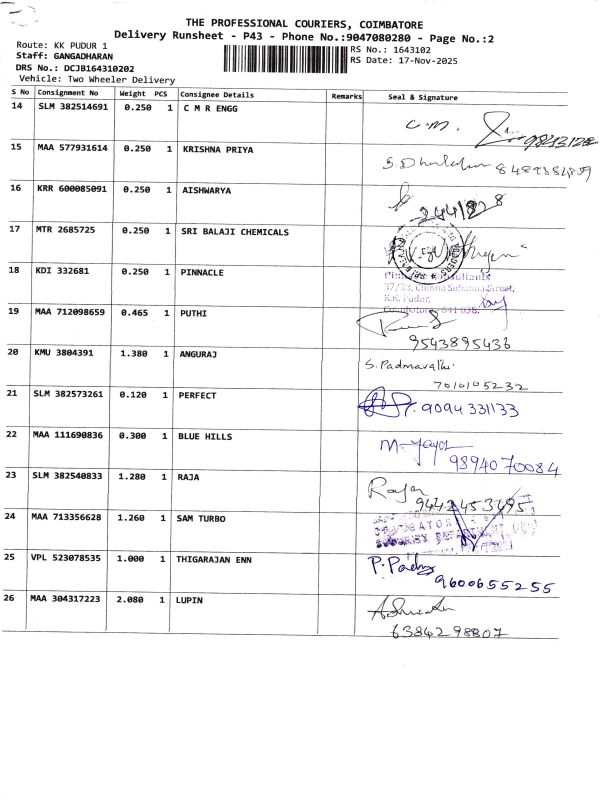 THE PROFESSIONAL COURIERS, COIMBATORE
Delivery Runsheet - P43 - Phone No.:9047080280 - Page No.:2
Route: KK PUDUR 1
RS No.: 1643102
Staff: GANGADHARAN
RS Date: 17-Nov-2025
DRS No.: DCJB164310202
Vehicle: Two Wheeler Delivery
S No Consignment No Weight PCS Consignee Details Remarks Seal & Signature
14 SLM 382514691 0.250 1 C M R ENGG
C.M.
15 MAA 577931614 0.250 1 KRISHNA PRIYA
16 KRR 600085091 0.250 1 AISHWARYA
17 MTR 2685725 0.250 1 SRI BALAJI CHEMICALS
18 KDI 332681 0.250 1 PINNACLE
37/33, Chinna Subanna Street,
K.K. Pudur,
Coimbatore - 641 038.
19 MAA 712098659 0.465 1 PUTHI
9543895436
20 KMU 3804391 1.380 1 ANGURAJ
S. Padmavathi
7010105232
21 SLM 382573261 0.120 1 PERFECT
9094 331133
22 MAA 111690836 0.300 1 BLUE HILLS
9894070084
23 SLM 382540833 1.280 1 RAJA
Raja
9442453495
24 MAA 713356628 1.260 1 SAM TURBO
25 VPL 523078535 1.000 1 THIGARAJAN ENN
P. Padma
9600655255
26 MAA 304317223 2.080 1 LUPIN
6384298807